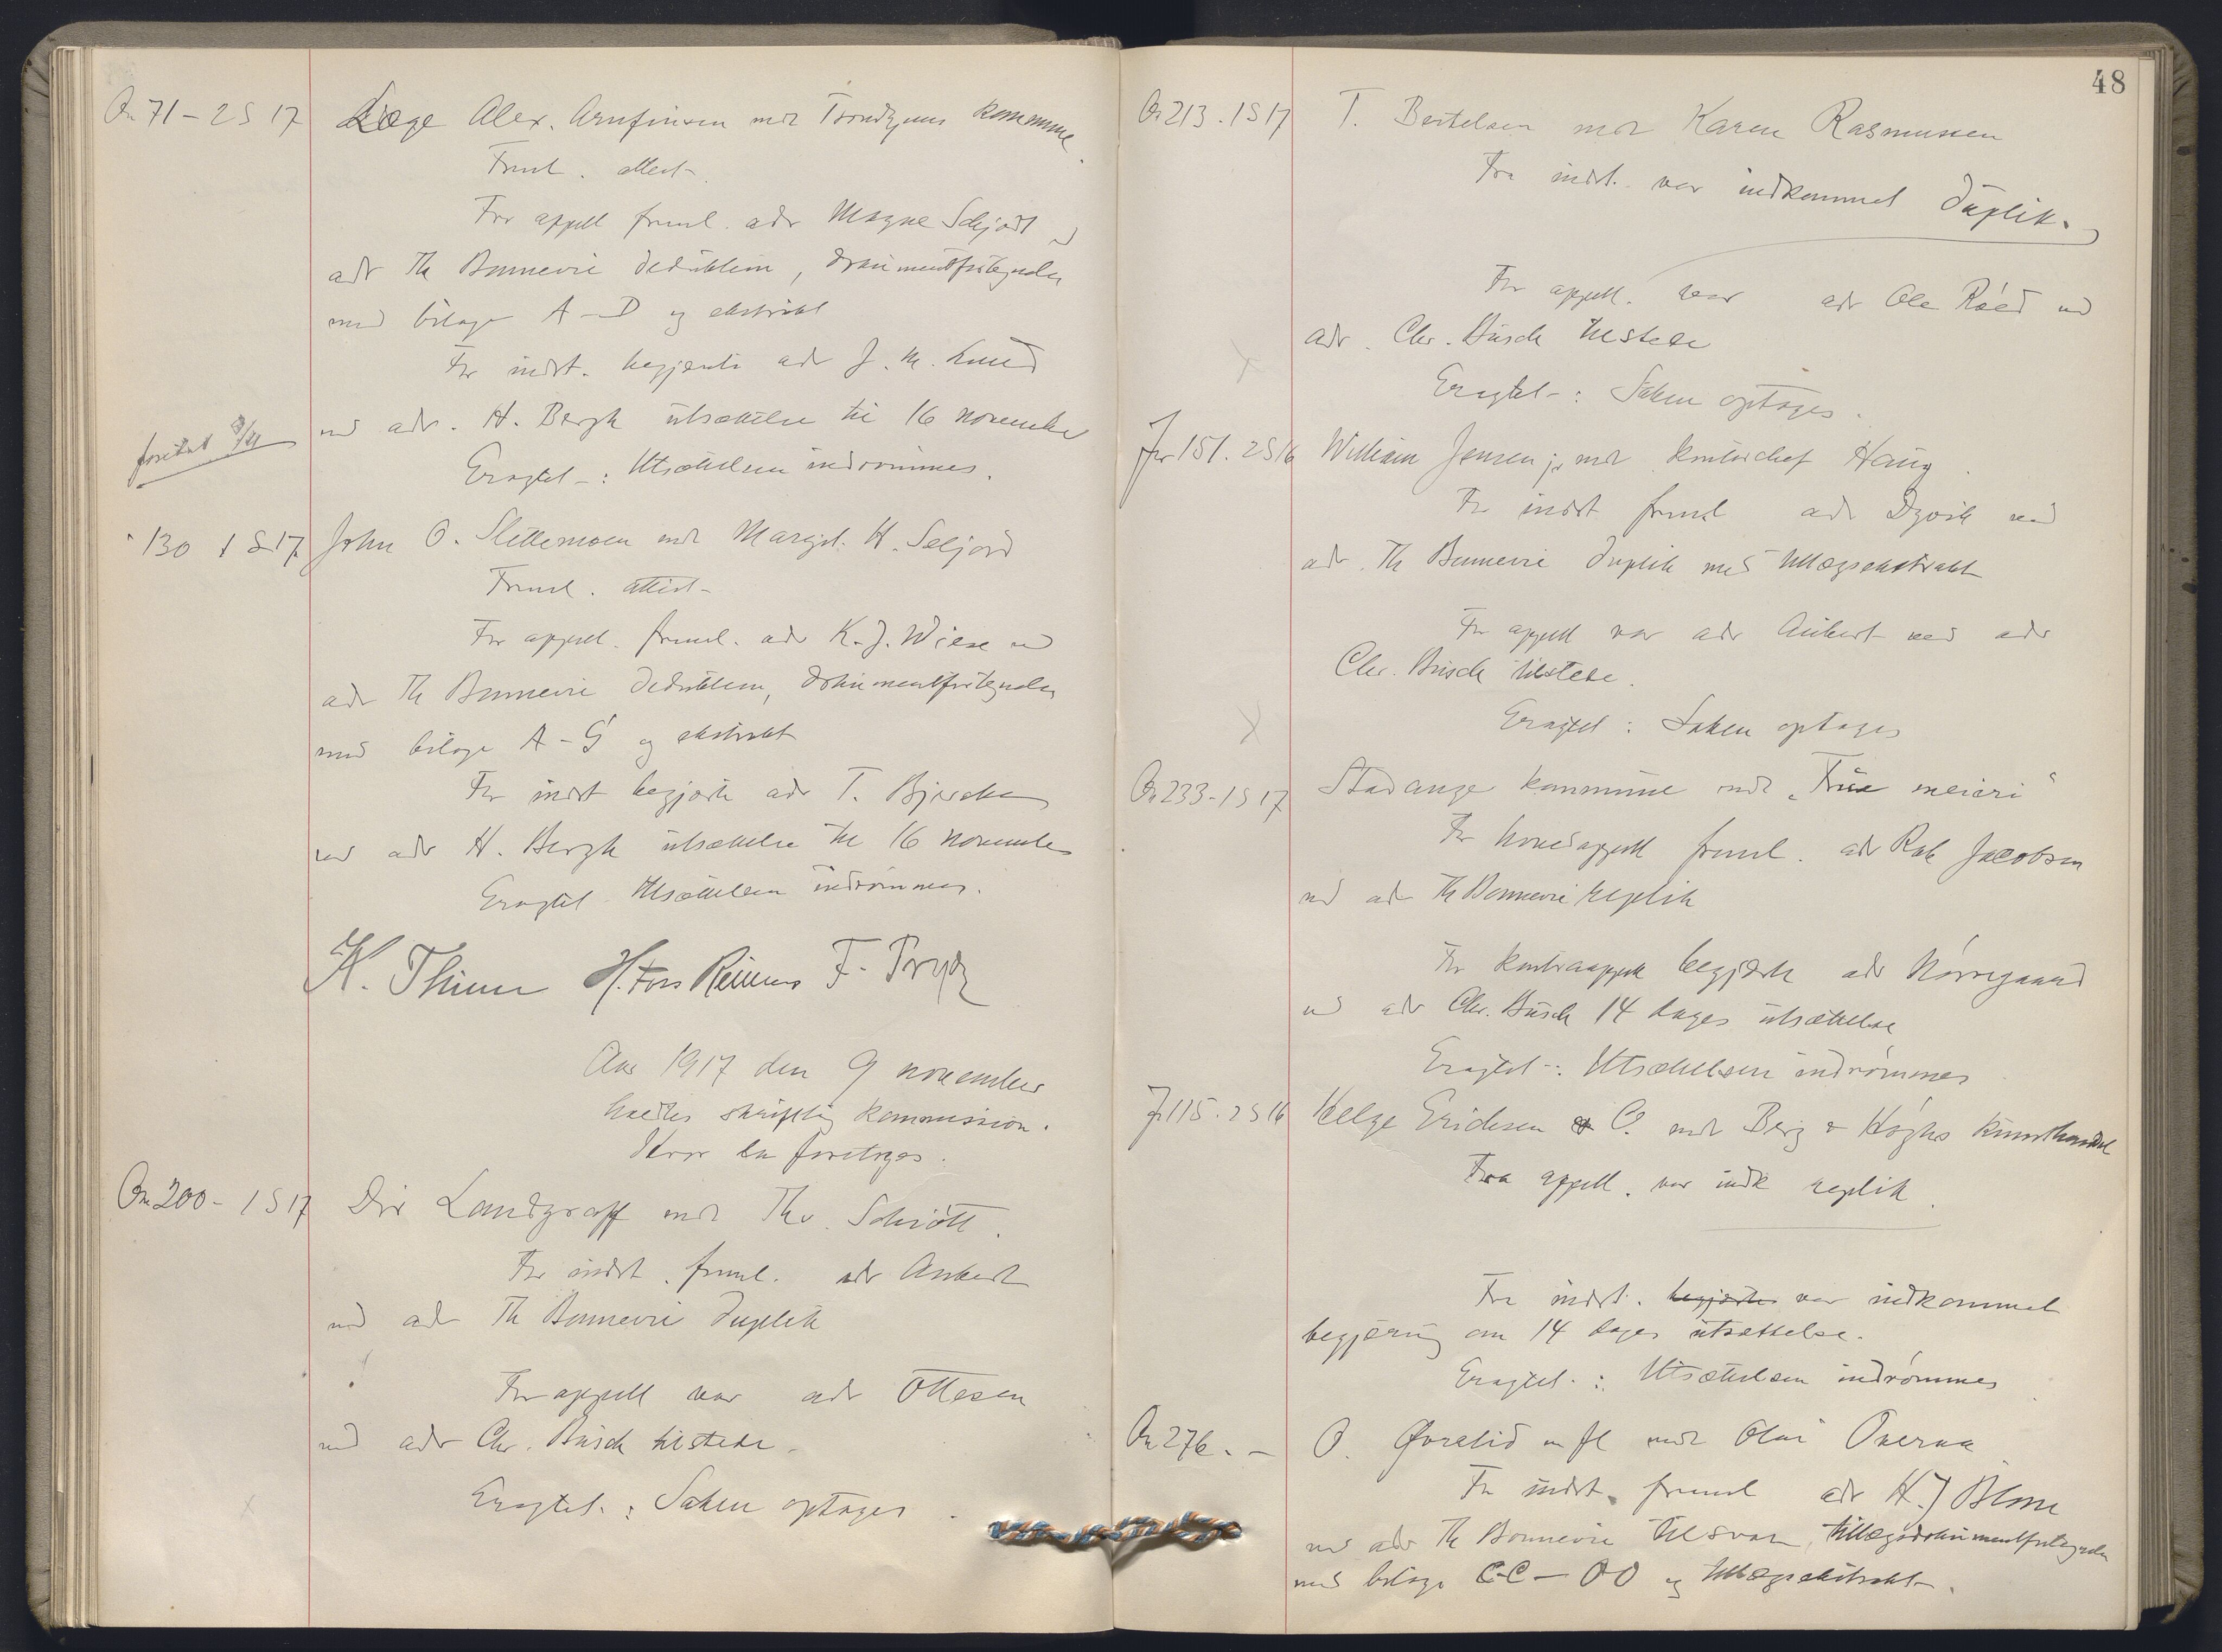 On 71 - 2 S 17 Læge Alex. Arnfinsen mot Trondhjems kommune.
Freml. attest.
For appell freml. adv Magne Schjødt v
adv Th Bonnevie deduktion, dokumentfortegnelse
med bilage A - D og ekstrakt
For indst. begjærte adv J. M. Lund
ved adv. H. Bergh utsættelse til 16 november
Eragtet: Utsættelsen indrømmes.
130 1 S 17 John O. Slettemoen mot Margit H. Seljord
Freml. attest
For appell. freml. adv K. J. Wiese ved
adv Th Bonnevie deduktion, dokumentfortegnelse
med bilage A - G og ekstrakt
For indst begjærte adv T. Bjercke
ved adv H. Bergh utsættelse til 16 november
Eragtet Utsættelsen indrømmes.
K. Thinn H. Foss Reimers F. Prydz
Aar 1917 den 9 november
holdtes skriftlig kommission.
Hvor da foretoges.
On 200 - 1 S 17 Dir Landgraff mot Thv. Schiøtt.
For indst. freml. adv Aubert
ved adv Th Bonnevie duplik
For appell var adv Ottesen
ved adv Chr. Busch tilstede.
Eragtet: Saken optages.
48
On 213. 1 S 17 T. Bertelsen mot Karen Rasmussen
Fra indst. var indkommet duplik.
For appell. var adv Ole Røed ved
adv. Chr. Busch tilstede
Eragtet: Saken optages.
Jr 151. 2 S 16 William Jensen jr mot kontorchef Haug.
For indst freml adv Dyvik ved
adv. Th Bonnevie duplik med tillægsekstrakt
For appell var adv Aubert ved adv
Chr. Busch tilstede.
Eragtet: Saken optages
On 233 - 1 S 17 Stavanger kommune mot "True meieri"
For hovedappell freml. adv Rob Jacobsen
ved adv Th Bonnevie replik
For kontraappell begjærte adv Nørregaard
ved adv Chr. Busch 14 dages utsættelse
Eragtet: Utsættelsen indrømmes
Jr 115. 2 S 16 Helge Erichsen & C. mot Berg & Høghs kunsthandel
Fra appell. var indk replik.
Fra indst. begjærtes var indkommet
begjæring om 14 dages utsættelse.
Eragtet: Utsættelsen indrømmes
On 276. - O. Øvrelid m fl mot Olai Overaa
For indst. freml adv H. J Blom
ved adv Th Bonnevie tilsvar, tillægsdokumentfortegnelse
med bilage CC - OO og tillægsekstrakt.